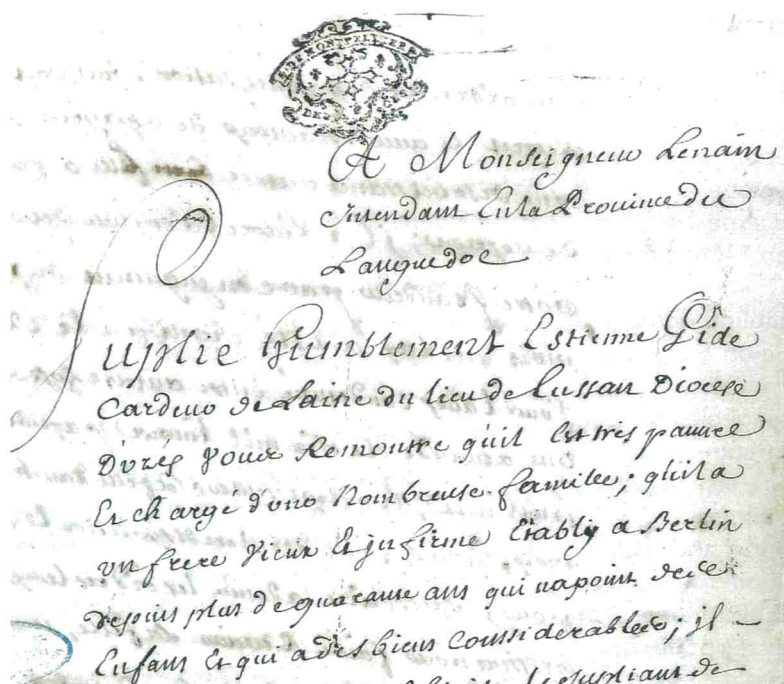 DE MONTPELLIER
A Monseigneur Lenain
Intendant En la Province de
Languedoc
Suplie humblement Estienne Gide
Cardeur de Laine du lieu de Lussan Diocese
D'uzes Vous Remontre quil Est tres pauvre
Et chargé d'une Nombreuse famille; quil a
un frere vieux Et infirme Etably a Berlin
depuis plus de quarante ans qui na point de
Enfans Et qui a des biens Considerables; il -
le supliant de